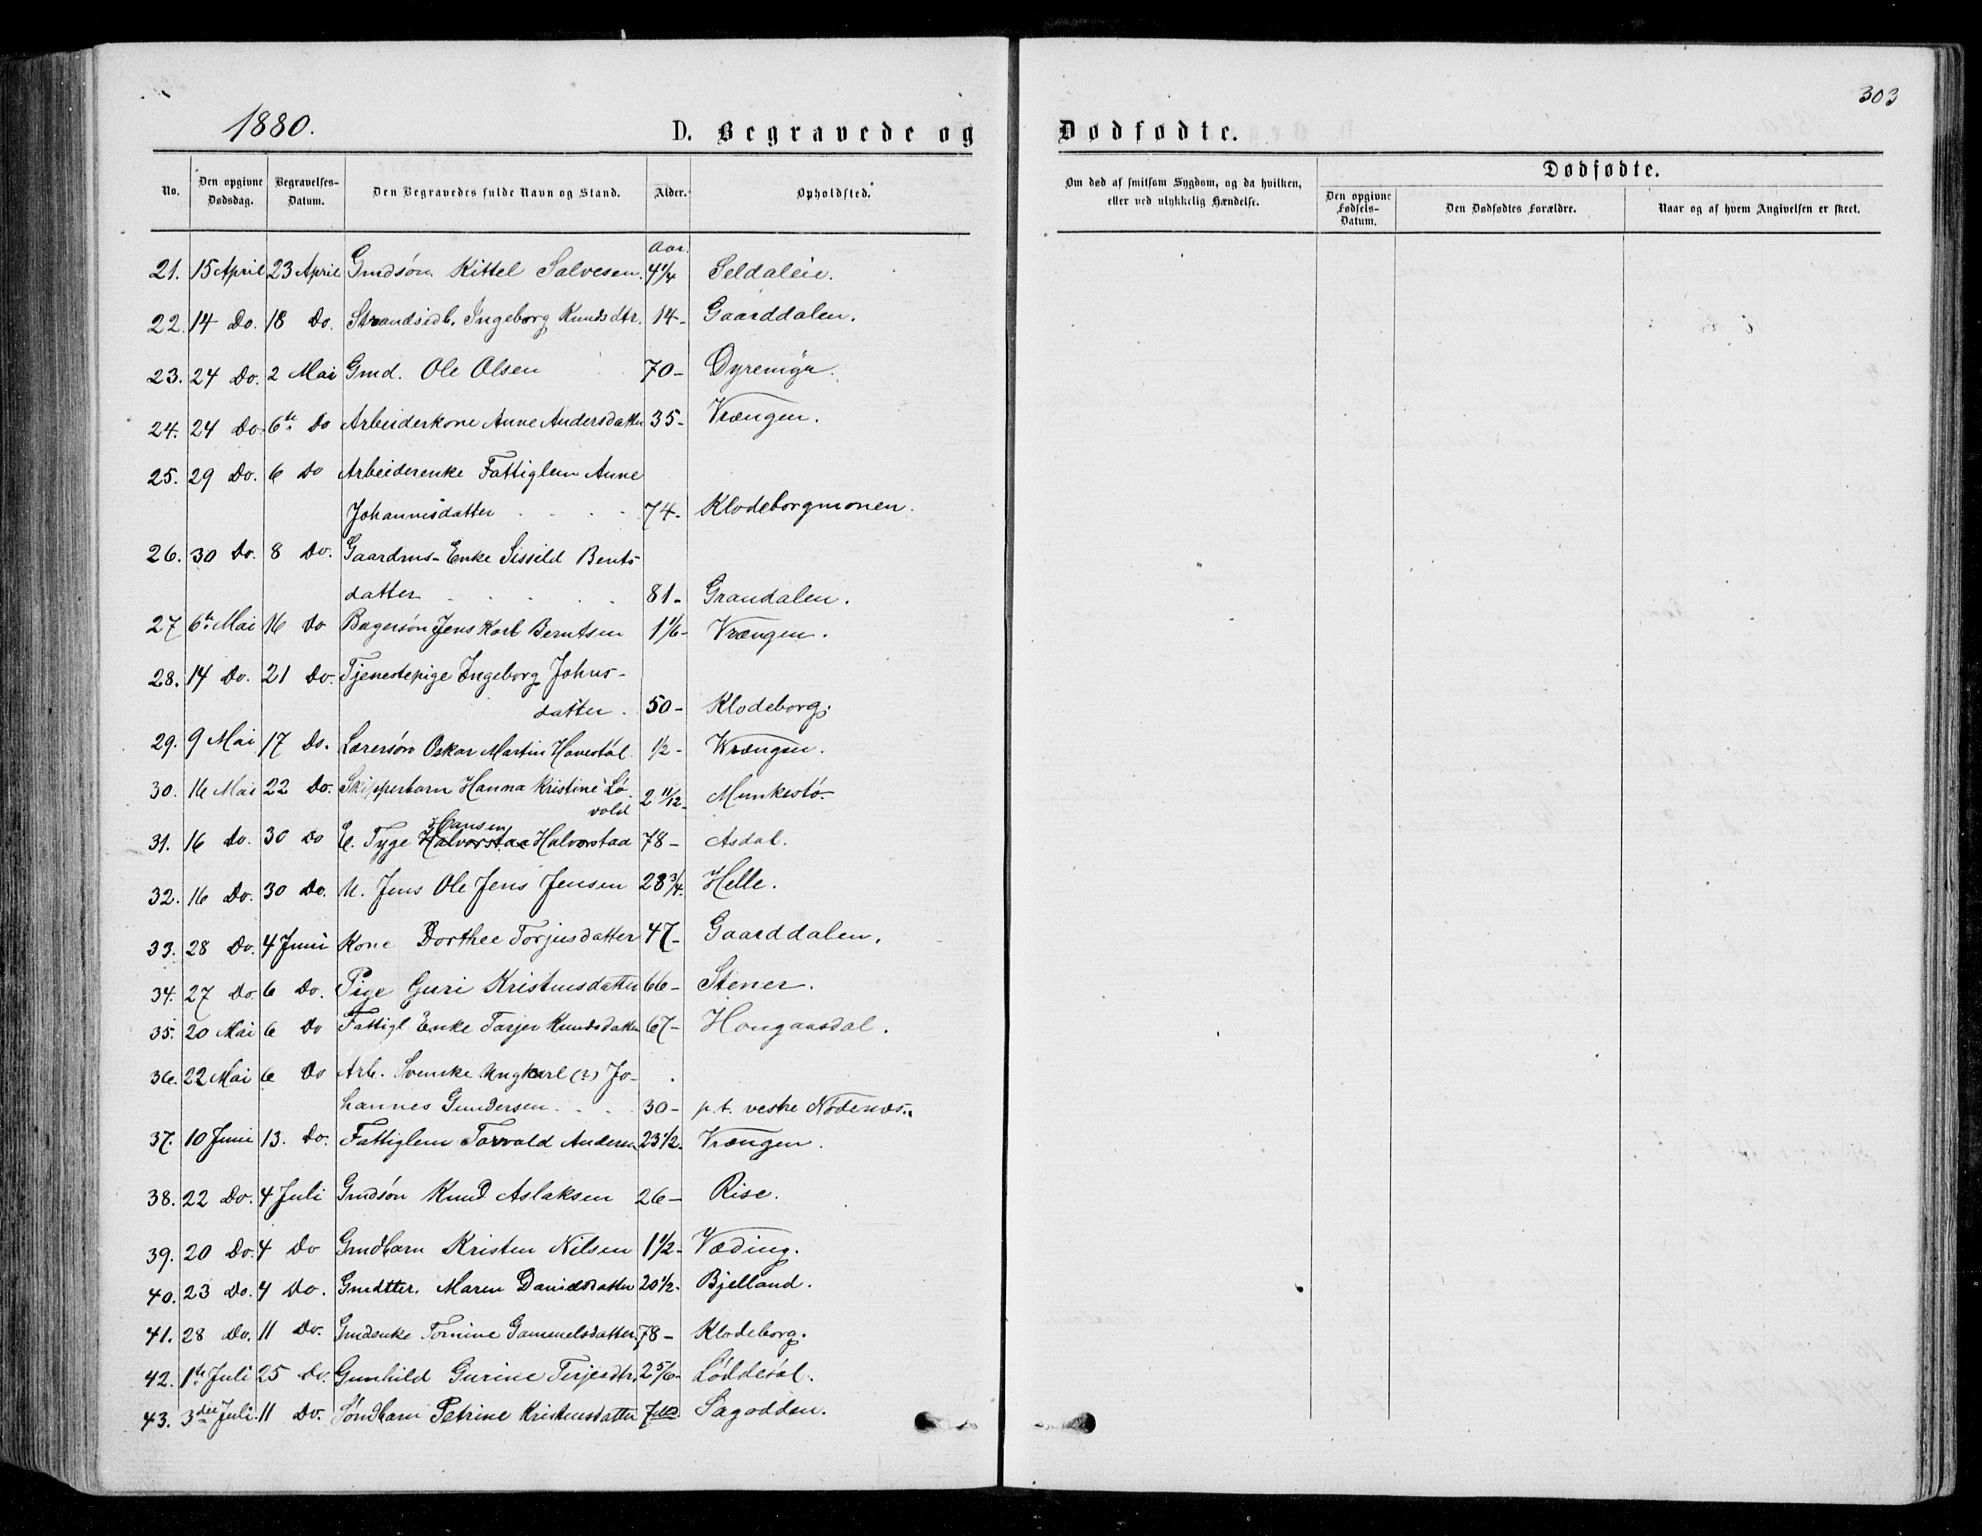 303
1880.
D. Begravede og Dødfødte.
No. Den opgivne Dødsdag. Begravelses-Datum. Den Begravedes fulde Navn og Stand. Alder. Opholdsted.
Om død af smitsom Sygdom, og da hvilken, eller ved ulykkelig Hændelse. Dødfødte. Den opgivne Fødsels-Datum. Den Dødfødtes Forældre. Naar og af hvem Angivelsen er skeet.
Aar.
21. 15 April 23 April Gmdsøn Kittel Salvesen. 4 1/4 Seldaleie.
22. 14 Do. 18 Do. Strandsidb. Ingeborg Knudsdtr. 14- Gaarddalen.
23. 24 Do. 2 Mai Gmd. Ole Olsen 70-
24. 24 Do. 6te Do Arbeiderkone Anne Andersdatter 35- Vrængen.
25. 29 Do. 6 Do Arbeiderenke Fattiglem Anne
Johannisdatter 74- Klodeborgmonen.
26. 30 Do. 8 Do. Gaardms-Enke Sissild Bents-
datter 81- Grandalen.
27 6te Mai 16 Do Bagersøn Jens Karl Berntsen 1 1/6- Vrængen.
28. 14 Do. 21 Do. Tjenestepige Ingeborg Johns-
datter. 50- Klodeborg.
29. 9 Mai 17 Do. Lærersøn Oskar Martin Havestøl 1/2- Vrængen.
30. 16 Mai 22 Do. Skipperbarn Hanna Kristine Lø-
vold 2 11/12- Munkestø-
Hansen
31. 16 Do. 30 Do E. Tyge Halvorstaa Halvorstad 78- Asdal.
32. 16 Do. 30 Do. U. Jens Ole Jens Jensen 28 3/4. Helle.
33. 28 Do. 4 Juni Kone Dorthee Torjusdatter 47- Gaarddalen.
34. 27 Do. 6 Do. Pige Guri Kristensdatter 66- Stener.
35. 20 Mai 6 Do Fattigl. Enke Tarjer Knudsdatter 67- Hougaasdal.
36. 22 Mai 6 Do Arb. Svenske Ungkarl (?) Jo-
hannes Gundersen 30- p.t. vestre Nødenæs.
37. 10 Juni 13. Do. Fattiglem Torvald Andersen 23 1/2- Vrængen.
38. 22 Do. 4 Juli Gmdsøn Knud Aslaksen 26- Rise.
39. 20 Do. 4 Do Gmdbarn Kristen Nilsen 1 1/2- Væding.
40. 23 Do. 4 Do. Gmdtter. Maren Danielsdatter 20 1/2- Bjelland.
41. 28 Do. 11 Do. Gmdenke Tomine Gammelsdatter 78- Klodeborg.
42. 1ste Juli 25 Do. Gunhild Gurine Terjesdtr. 2 5/6- Løddesøl.
43. 3die Juli. 11 Do. Søndbarn Petrine Kristensdatter Sagodden.